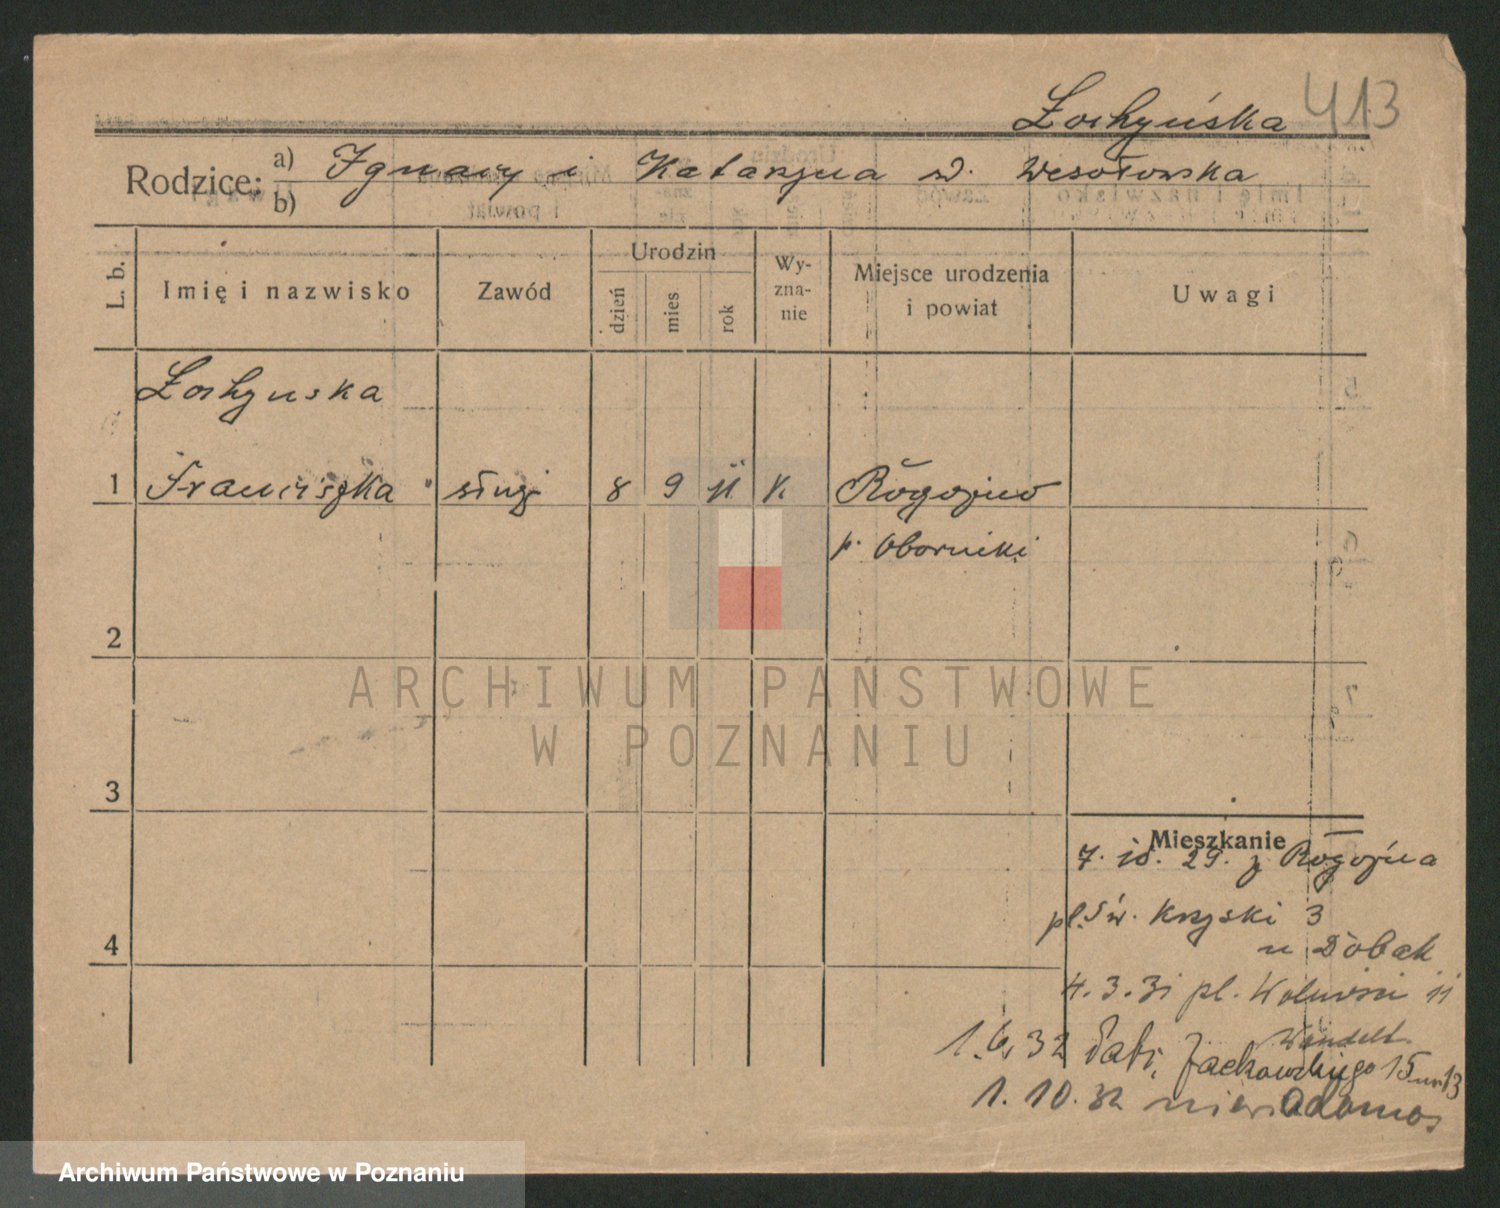 Żochyńska 413
Rodzice: a) Ignacy i Katarzyna w. Wesołowska
b)
L. b.
Imię i nazwisko
Zawód
Urodzin
dzień
mies
rok
Wy-
zna-
nie
Miejsce urodzenia
i powiat
Uwagi
Żochynska
1 Franciszka sługi 8 9 11 k. Rogoźno
p. Oborniki
2
3
4
Mieszkanie
7. 10. 29. z Rogoźna
pl. Św. Krzyski 3
u Dobak
4. 3. 31 pl. Wolności 11
Wendelt
1. 6. 32 Patr. Jackowskiego 15 m 13
1. 10. 32 niewiadomo
ARCHIWUM PAŃSTWOWE
W POZNANIU
Archiwum Państwowe w Poznaniu